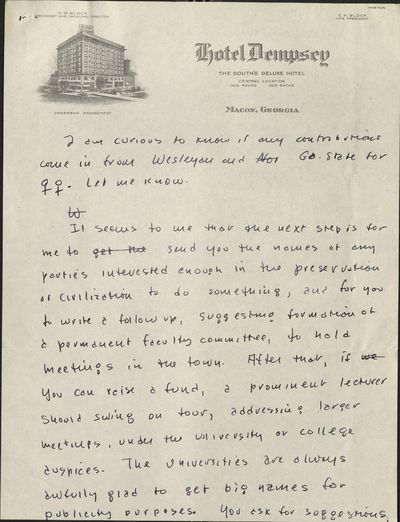 H. M. BLOCK
PRESIDENT AND MANAGING DIRECTOR
E. H. BLOCK
VICE PRESIDENT
Hotel Dempsey
THE SOUTH'S DELUXE HOTEL
CENTRAL LOCATION
ROOMS
BATHS
MACON, GEORGIA
OWNERSHIP MANAGEMENT
I am curious to know if any contributions
come in from Wesleyan and Ga. State for
♀♀. Let me know.
W
It seems to me that the next step is for
me to get the send you the names of any
parties interested enough in the preservation
of civilization to do something, and for you
to write a follow up, suggesting formation of
a permanent faculty committee, to hold
meetings in the town. After that, if we
you can raise a fund, a prominent lecturer
should swing on tour, addressing larger
meetings, under the university or college
auspices. The universities are always
awfully glad to get big names for
publicity purposes. You ask for suggestions,